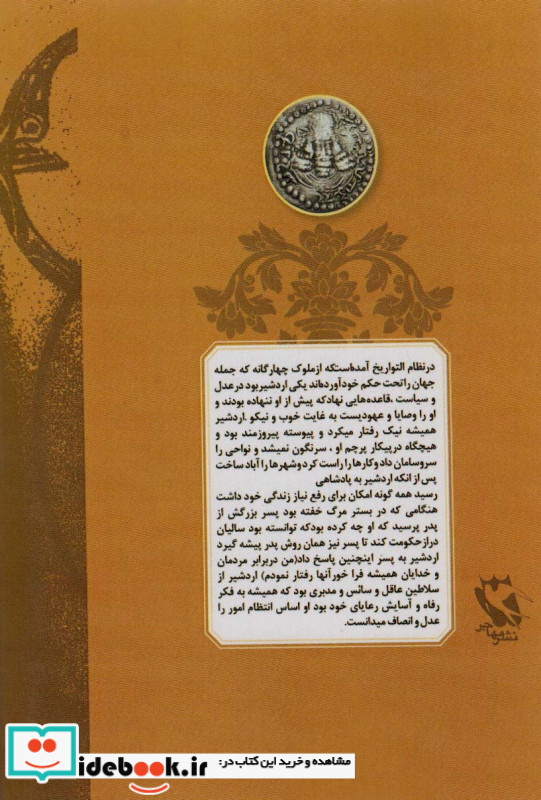 در نظام التواریخ آمده‌است‌که ازملوک چهارگانه که جمله
جهان راتحت حکم خودآورده‌اند یکی اردشیربود در عدل
و سیاست ، قاعده‌هایی نهادکه پیش از او ننهاده بودند و
او را وصایا و عهودیست به غایت خوب و نیکو .اردشیر
همیشه نیک رفتار میکرد و پیوسته پیروزمند بود و
هیچگاه درپیکار پرچم او ، سرنگون نمیشد و نواحی را
سروسامان دادوکارها را راست کردوشهرها را آباد ساخت
پس از انکه اردشیر به پادشاهی
رسید همه گونه امکان برای رفع نیاز زندگی خود داشت
هنگامی که در بستر مرگ خفته بود پسر بزرگش از
پدر پرسید که او چه کرده بودکه توانسته بود سالیان
درازحکومت کند تا پسر نیز همان روش پدر پیشه گیرد
اردشیر به پسر اینچنین پاسخ داد(من دربرابر مردمان
و خدایان همیشه فرا خورآنها رفتار نمودم) اردشیر از
سلاطین عاقل و سائس و مدبری بود که همیشه به فکر
رفاه و آسایش رعایای خود بود او اساس انتظام امور را
عدل و انصاف میدانست.
نشر مهاجر
مشاهده و خرید این کتاب در:
idebook.ir